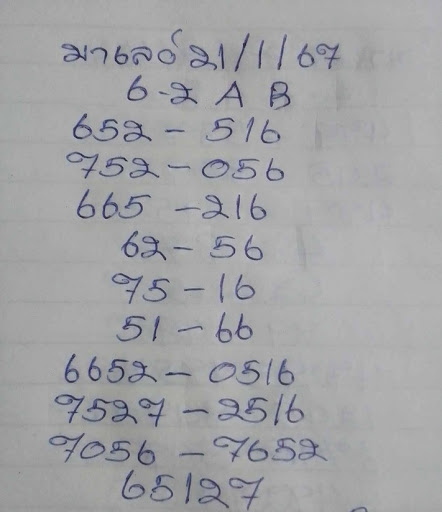 มาเลย์ 21/1/67
6-2 A B
652 - 516
752 - 056
665 - 216
62 - 56
75 - 16
51 - 66
6652 - 0516
7527 - 2516
7056 - 7652
65127